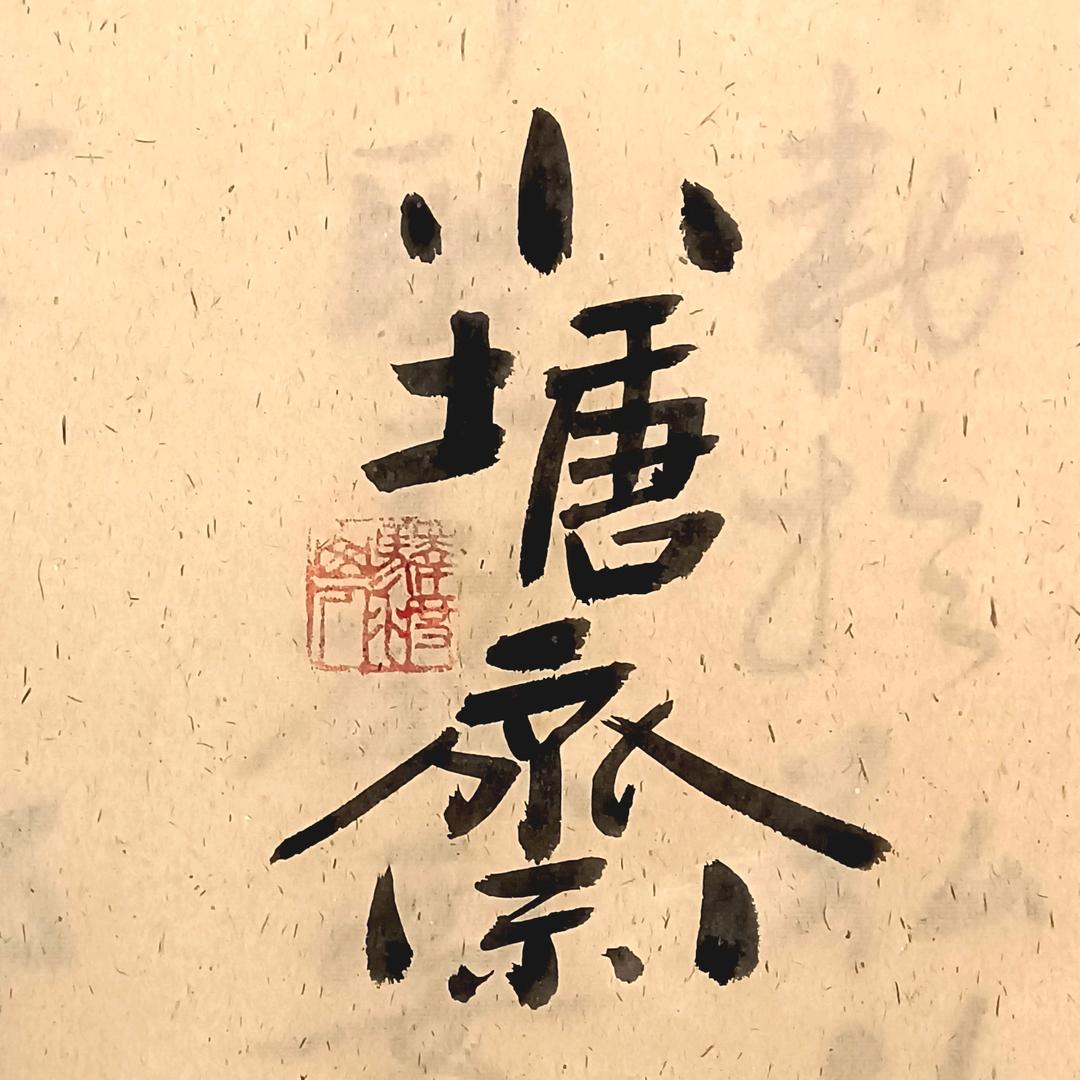 小塘齋